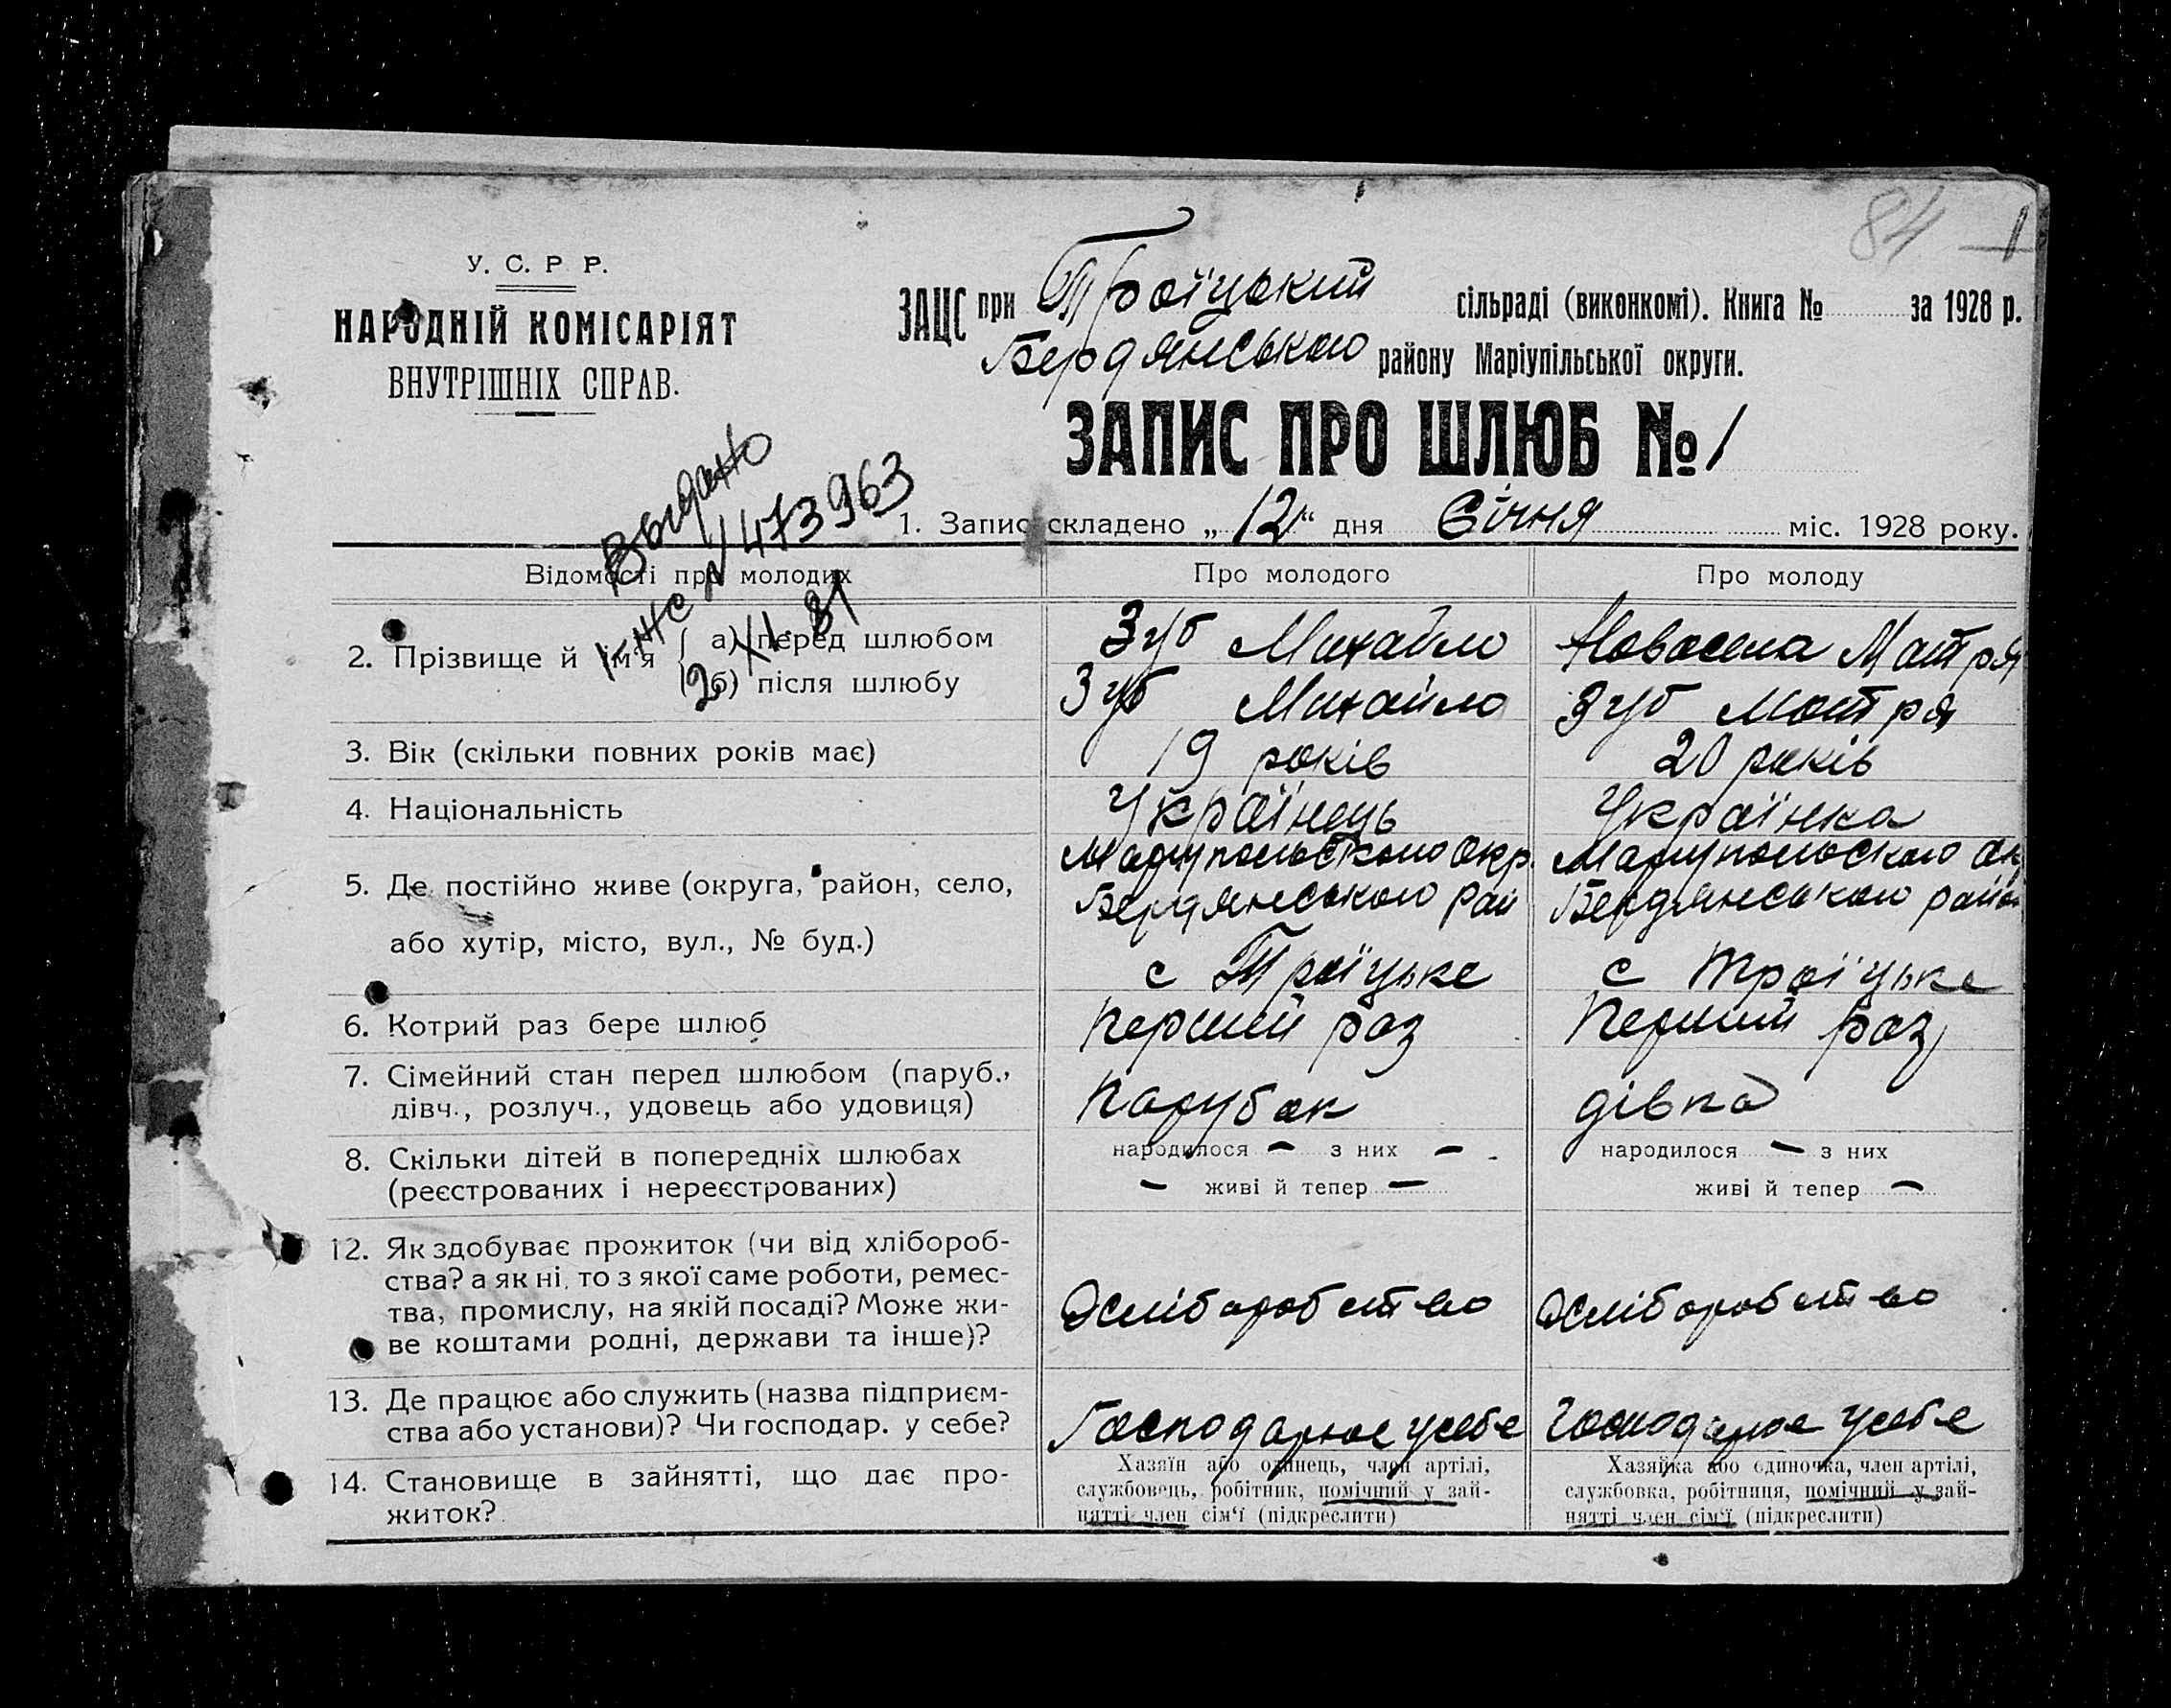 84 1
У. С. Р Р.
НАРОДНІЙ КОМІСАРІЯТ
ВНУТРІШНІХ СПРАВ.
ЗАЦС при Троїцький сільраді (виконкомі). Книга № за 1928 р.
Бердянського району Маріупільської округи.
ЗАПИС ПРО ШЛЮБ № 1
Выдано
I-ЖС N 473963
2. XI. 81
1. Запис складено „12“ дня Січня міс. 1928 року.
Відомості про молодих Про молодого Про молоду
2. Прізвище й ім'я а) перед шлюбом Зуб Михайло Новосела Мотря
б) після шлюбу Зуб Михайло Зуб Мотря
3. Вік (скільки повних років має) 19 років 20 років
4. Національність Українець Українка
5. Де постійно живе (округа, район, село, Маріупольського Окр. Маріупольского Ок
або хутір, місто, вул., № буд.) Бердянського рай Бердянського район
с Троїцьке с Троїцьке
6. Котрий раз бере шлюб Перший раз Перший раз
7. Сімейний стан перед шлюбом (паруб.,
дівч., розлуч., удовець або удовиця) Парубок дівка
8. Скільки дітей в попередніх шлюбах народилося — з них — народилося — з них
(реєстрованих і нереєстрованих) — живі й тепер — живі й тепер —
12. Як здобуває прожиток (чи від хлібороб-
ства? а як ні, то з якої саме роботи, ремес-
тва, промислу, на якій посаді? Може жи- Хліборобство Хліборобство
ве коштами родні, держави та інше)?
13. Де працює або служить (назва підприєм-
ства або установи)? Чи господар. у себе? Господарює усебе Господарює усебе
14. Становище в зайнятті, що дає про-
житок?
Хазяїн або одинець, член артілі,
службовець, робітник, помічний у зай-
нятті член сім'ї (підкреслити)
Хазяйка або одиночка, член артілі,
службовка, робітниця, помічний у зай-
нятті член сім'ї (підкреслити)